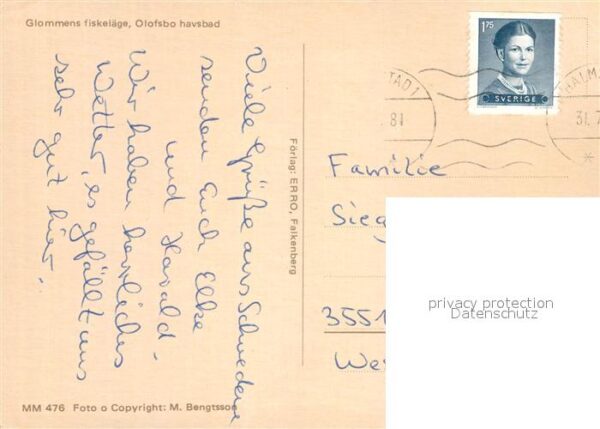 Glommens fiskeläge, Olofsbo havsbad
Viele Grüße aus Schweden
senden Euch Elke
und Harald.
Wir haben herrliches
Wetter, es gefällt uns
sehr gut hier.
Förlag: ERRO, Falkenberg
MM 476 Foto o Copyright: M. Bengtsson
1.75
SVERIGE
STAD 1
81
HALM
31.7
Familie
Sieg
3551
We
privacy protection
Datenschutz